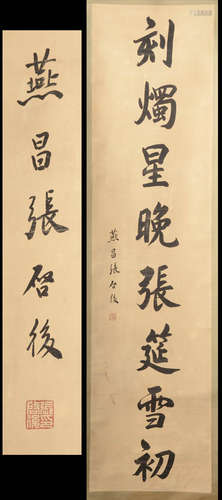 刻燭星晚張筵雪初
燕昌張啓後
燕昌張啓後